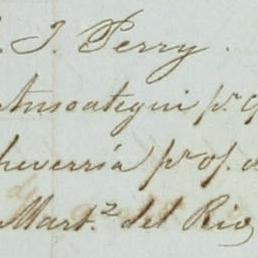 J. Perry.
Ansoategui pr. 
heverría pr. of. d
Mart.z del Rio